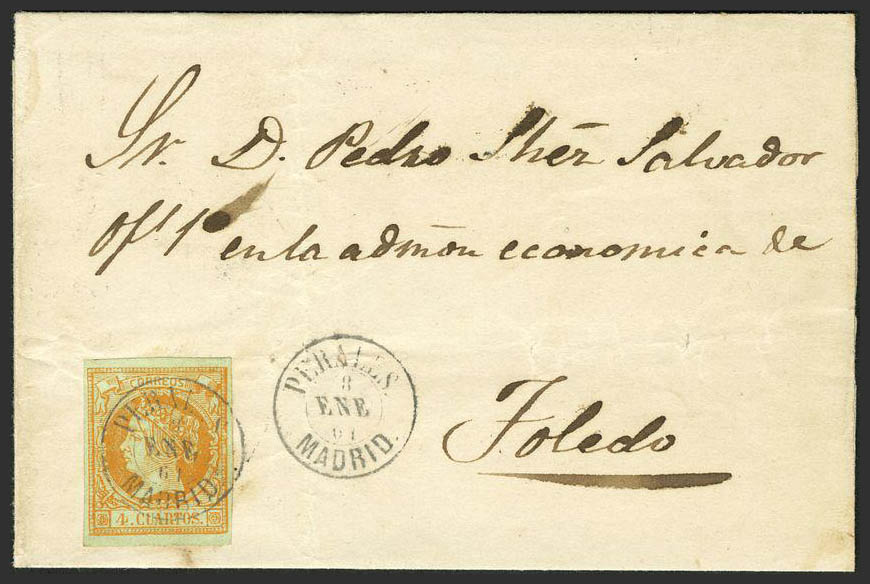 Sr. D. Pedro Shēz Salvador
Ofl. 1º en la admōn economica de
Toledo
CORREOS
PERAL
ENE
61
MADRID
4 CUARTOS.
PERALES.
8
ENE
61
MADRID.